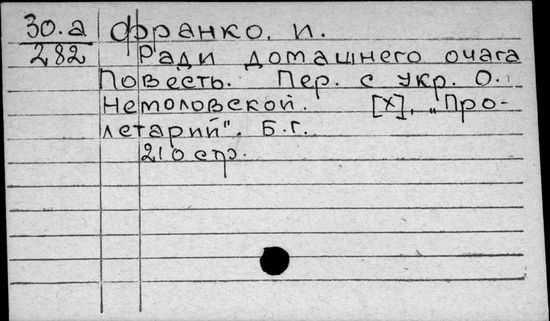 30.а Франко. И.
282 Ради домашнего очага
Повесть. Пер. с укр. О.
Немоловской. [X], „Про-
летарий". Б.г.
210 стр.